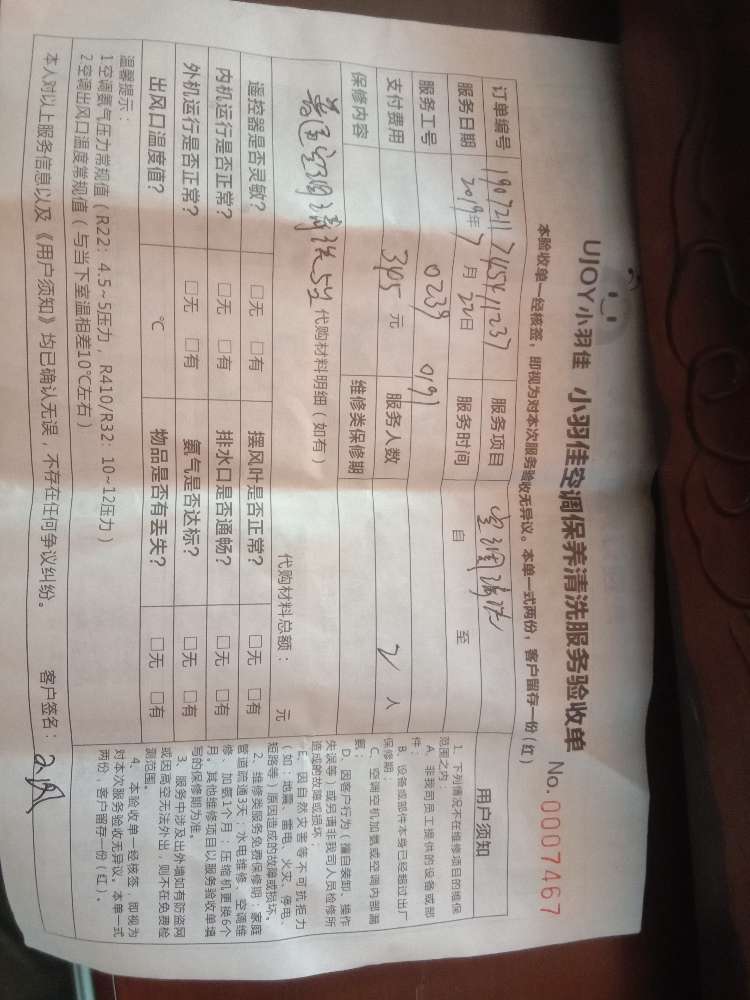 UJOY小羽佳 小羽佳空调保养清洗服务验收单
No. 0007467
本验收单一经核签，即视为对本次服务验收无异议。本单一式两份，客户留存一份(红)
订单编号 服务项目 空调清洗
服务日期 2019年7月22日 服务时间 自 至
服务工号 0239 0191
支付费用 345元 服务人数 2人
保修内容 维修类保修期
普通空调清洗5台
代购材料明细（如有） 代购材料总额： 元
遥控器是否灵敏？ □无 □有 摆风叶是否正常？ □无 □有
内机运行是否正常？ □无 □有 排水口是否通畅？ □无 □有
外机运行是否正常？ □无 □有 氨气是否达标？ □无 □有
出风口温度值？ ℃ 物品是否有丢失？ □无 □有
温馨提示：
1空调氨气压力常规值（R22: 4.5~5压力，R410/R32: 10~12压力）
2空调出风口温度常规值（与当下室温相差10℃左右）
本人对以上服务信息以及《用户须知》均已确认无误，不存在任何争议纠纷。 客户签名：
用户须知
1、下列情况不在维修项目的维保
范围之内：
A、非我司员工提供的设备或部
件；
B、设备或部件本身已经超过出厂
保修期；
C、空调空机加氨或空调内部漏
氨；
D、因客户行为（擅自装卸、操作
失误等）或另请非我司人员检修所
造成的故障或损坏；
E、因自然灾害等不可抗拒力
（如：地震、雷电、火灾、停电、
短路等）原因造成的故障或损坏。
2、维修类服务免费保修期：家庭
管道疏通3天；水电维修、空调维
修、加氨1个月；压缩机更换6个
月，其他维修项目以服务验收单填
写的保修期为准。
3、服务中涉及出外墙如有防盗网
或因高空无法外出，则不在免费检
测范围。
4、本验收单一经核签，即视为
对本次服务验收无异议。本单一式
两份，客户留存一份（红）。